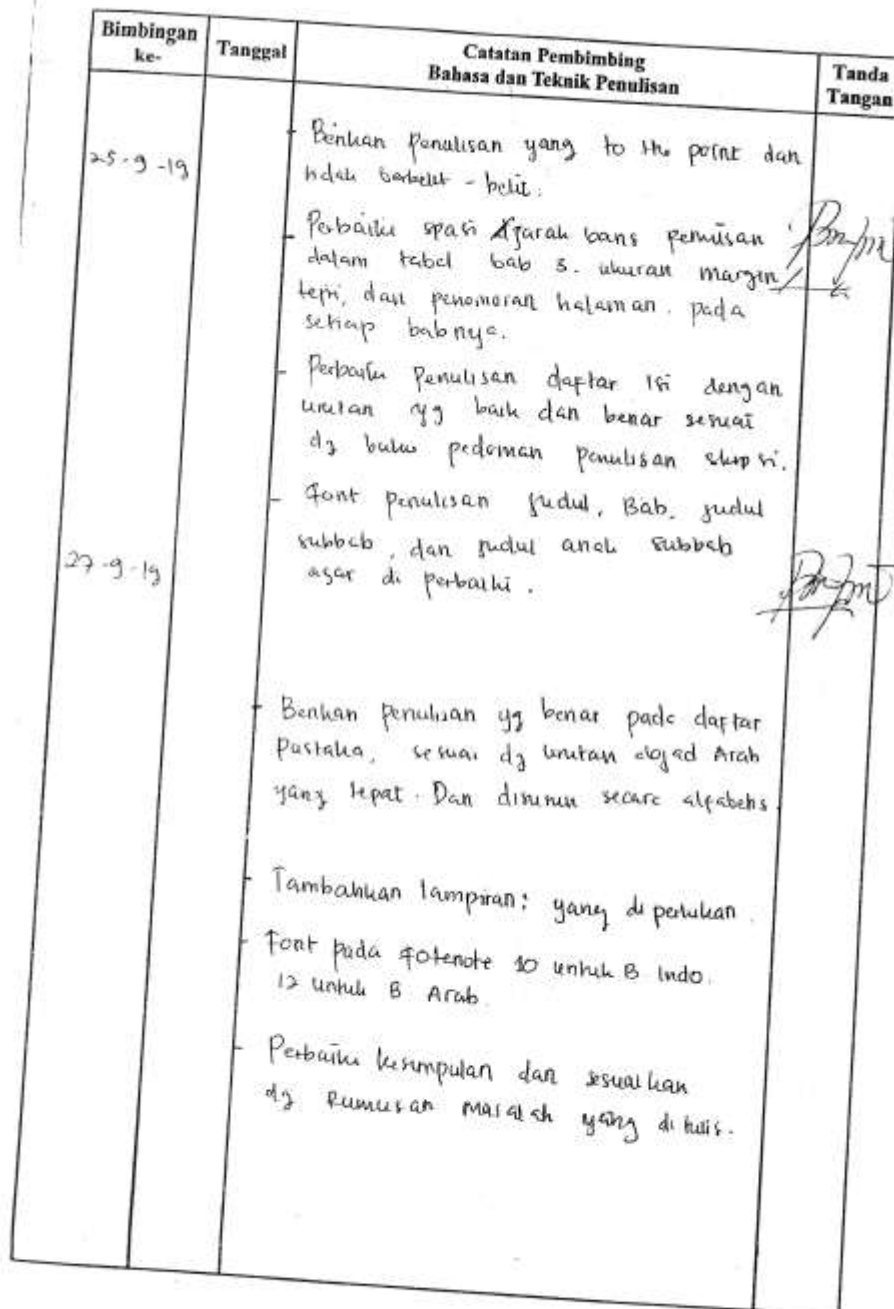 Bimbingan ke-
Tanggal
Catatan Pembimbing
Bahasa dan Teknik Penulisan
Tanda Tangan
25-9-19
Berikan penulisan yang to the point dan
tidak berbelit-belit.
- Perbaiki spasi jarak baris penulisan
dalam tabel bab 3. ukuran margin,
tepi, dan penomoran halaman. pada
setiap babnya.
- Perbaiki Penulisan daftar isi dengan
urutan yg baik dan benar sesuai
dg buku pedoman penulisan skripsi.
- Font penulisan judul, Bab, judul
subbab, dan judul anak subbab
agar di perbaiki.
27-9-19
- Berikan penulisan yg benar pada daftar
Pustaka, sesuai dg urutan abjad Arab
yang tepat. Dan disusun secara alfabetis
- Tambahkan lampiran: yang di perlukan.
- Font pada fotenote 10 untuk B Indo.
12 untuk B Arab.
- Perbaiki kesimpulan dan sesuaikan
dg Rumusan masalah yang di tulis.